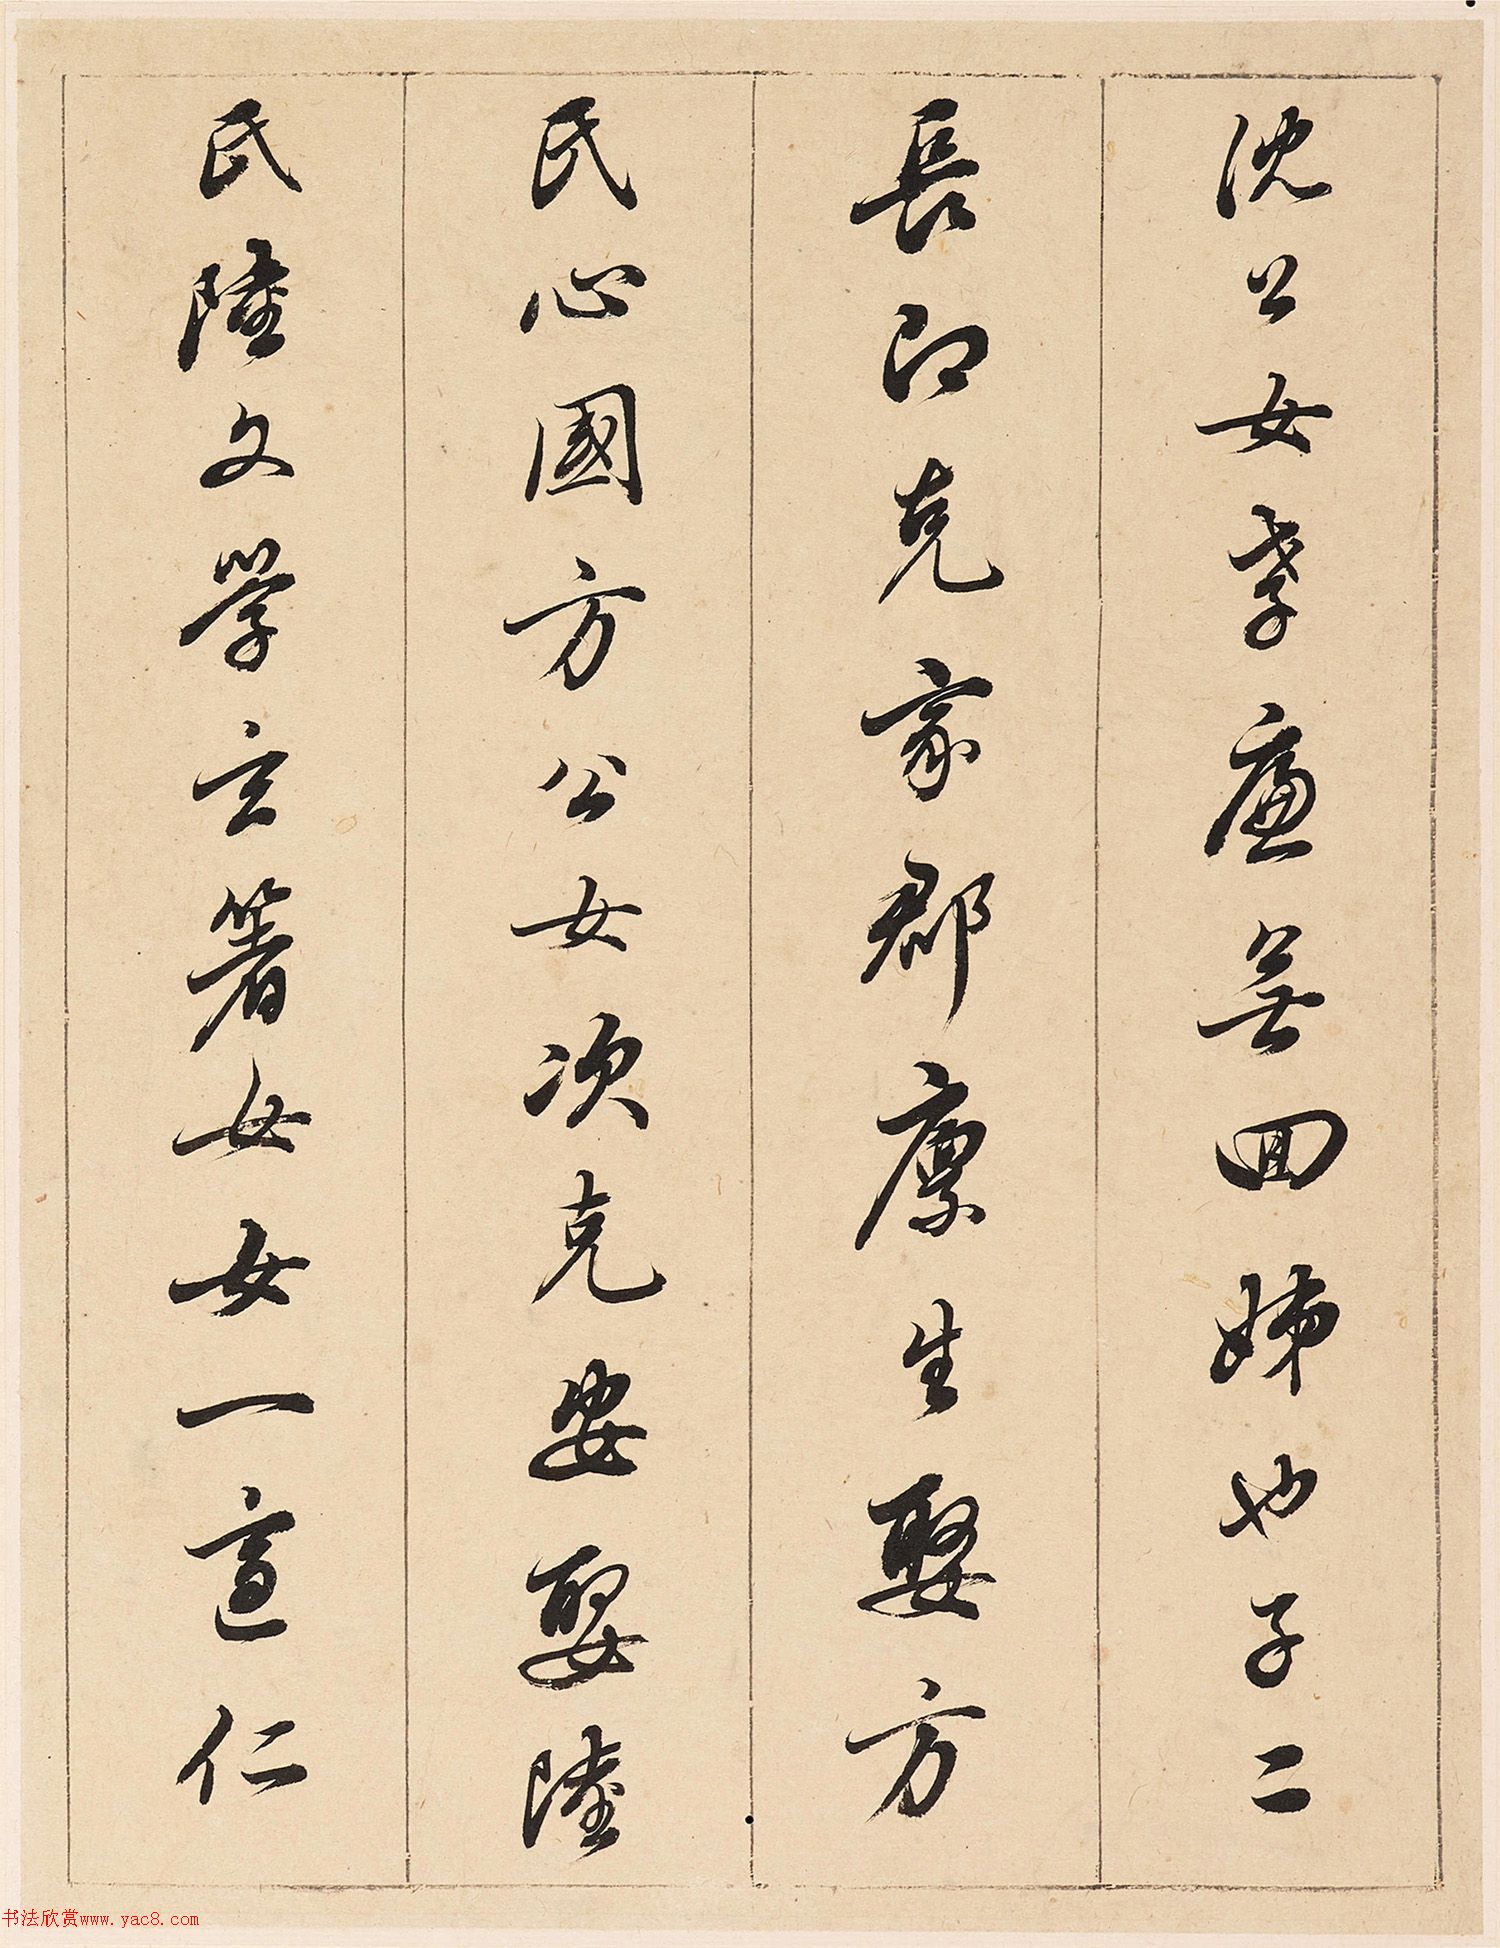 沈公女孝廉公回姊也子二
長即克家郡廪生娶方
氏心國方公女次克安娶陸
氏陸文學玄著女女一適仁
书法欣赏www.yac8.com